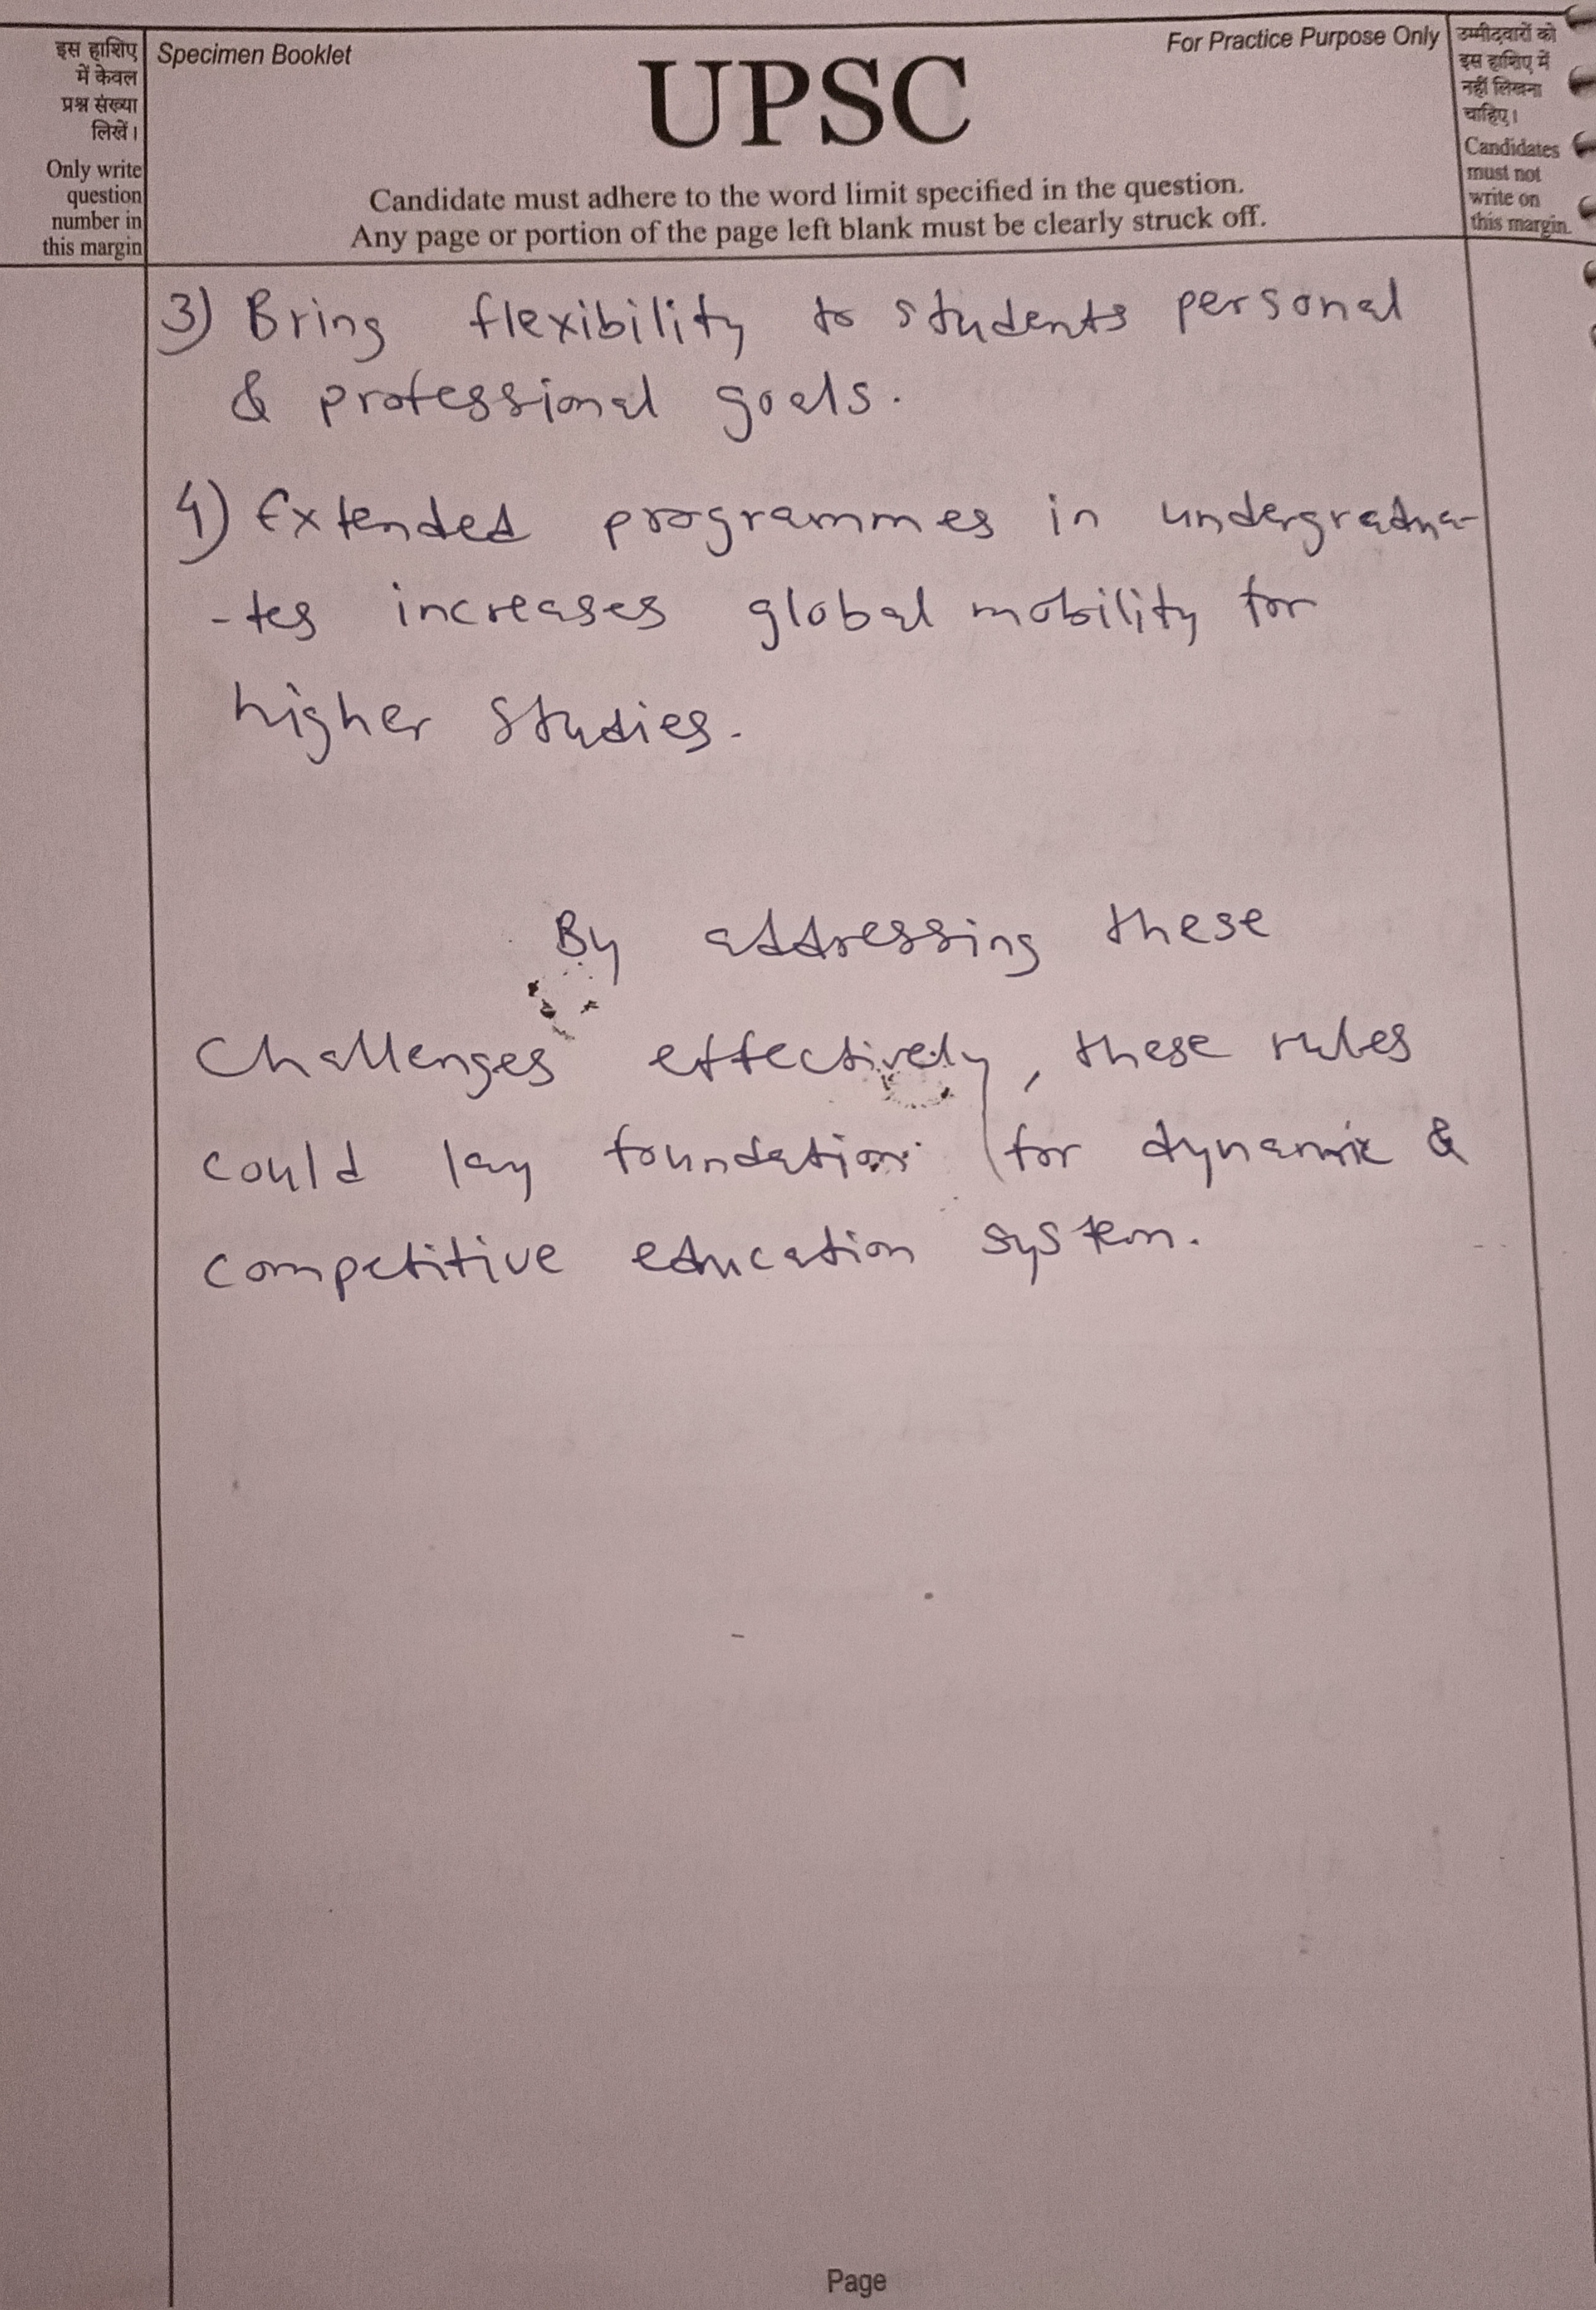 इस हाशिए
में केवल
प्रश्न संख्या
लिखें।
Only write
question
number in
this margin
Specimen Booklet
For Practice Purpose Only
UPSC
Candidate must adhere to the word limit specified in the question.
Any page or portion of the page left blank must be clearly struck off.
उम्मीदवारों को
इस हाशिए में
नहीं लिखना
चाहिए।
Candidates
must not
write on
this margin.
3) Bring flexibility to students personal
& professional goals.
4) Extended programmes in undergradua-
-tes increases global mobility for
higher studies.
By addressing these
challenges effectively, these rules
could lay foundation for dynamic &
competitive education system.
Page